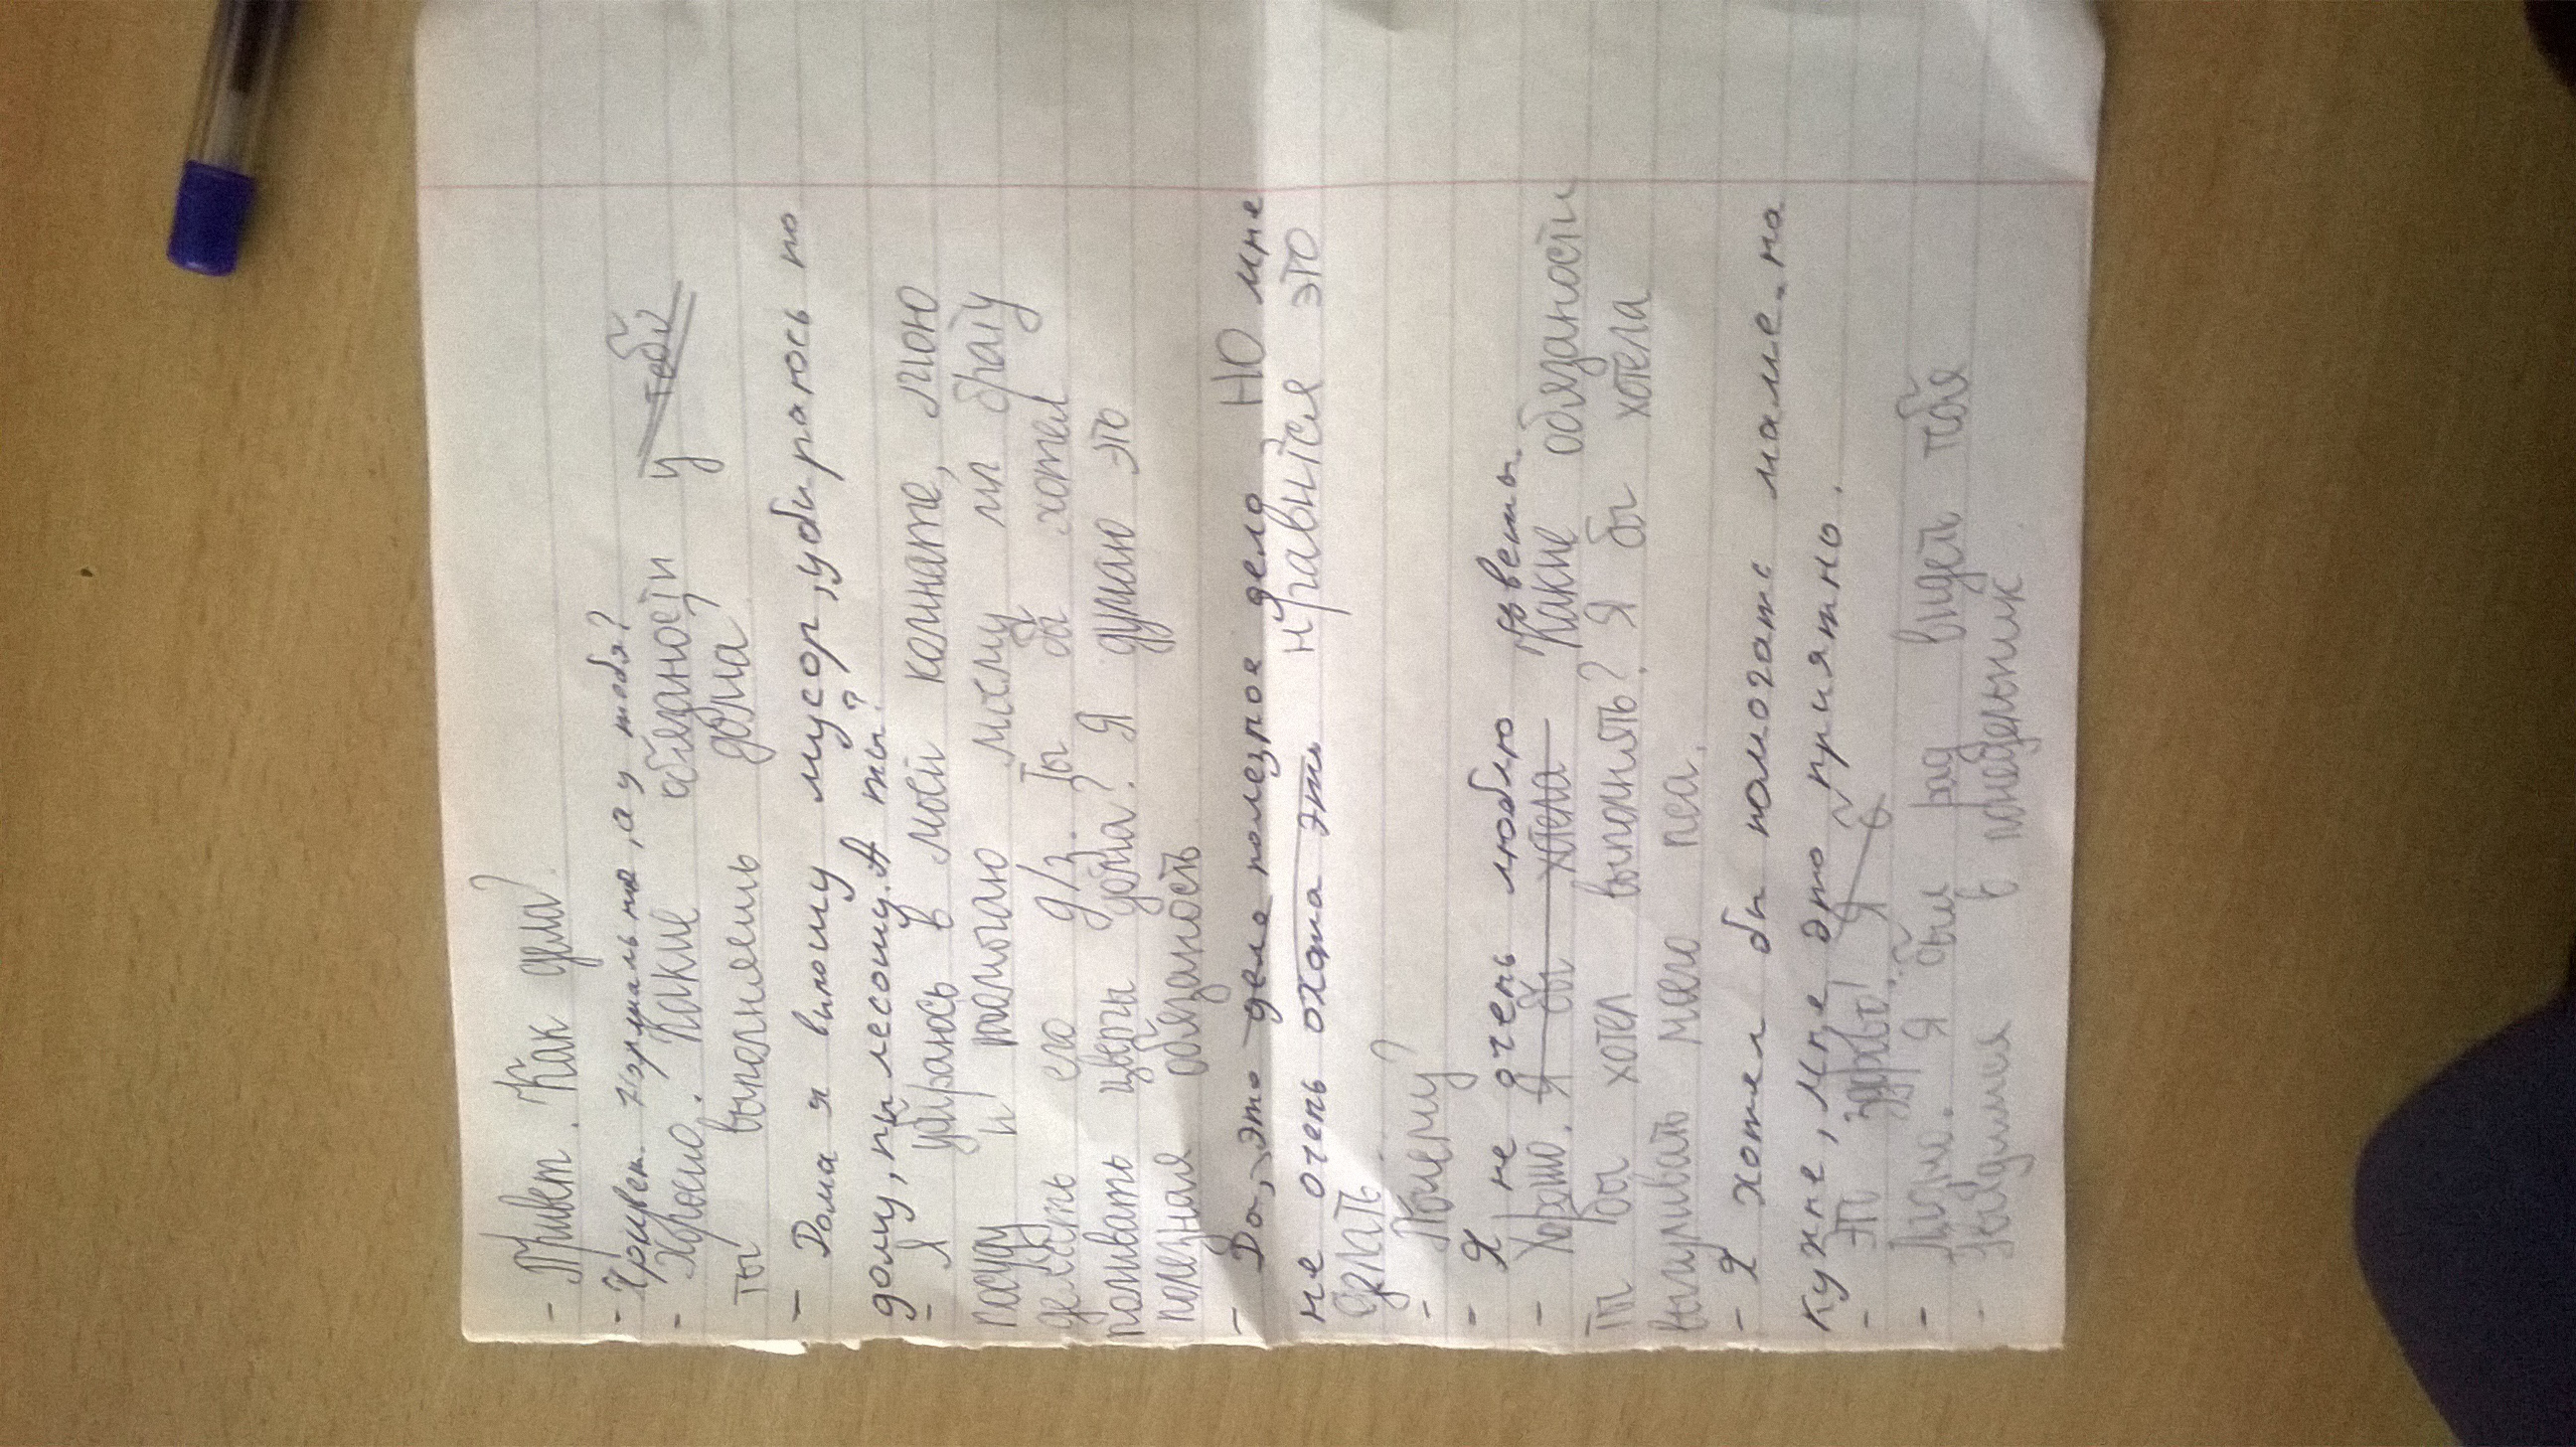 - Привет. Как дела?
- Привет. нормально, а у тебя?
- Хорошо. Какие обязаности у тебя
ты выполняешь дома?
- Дома я выношу мусор, убираюсь по
дому, пылесошу. А ты?
- Я убираюсь в моей комнате, мою
посуду и помогаю моему мл брату
делать его д/з. Ты бы хотел
поливать цветы дома? Я думаю это
полезная обязаность
- Да, это дело полезное дело НО мне
не очень охота эти нравится это
делать.
- Почему?
- Я не очень люблю цветы.
- Хорошо. Я бы хотела Какие обязаности
ты бы хотел выполнять? Я бы хотела
выгуливать моего пса.
- Я хотел бы помогать маме на
кухне, мне это приятно.
- Это здорово! Я б
- Я был рад видеть тебя
- Увидимся в понедельник